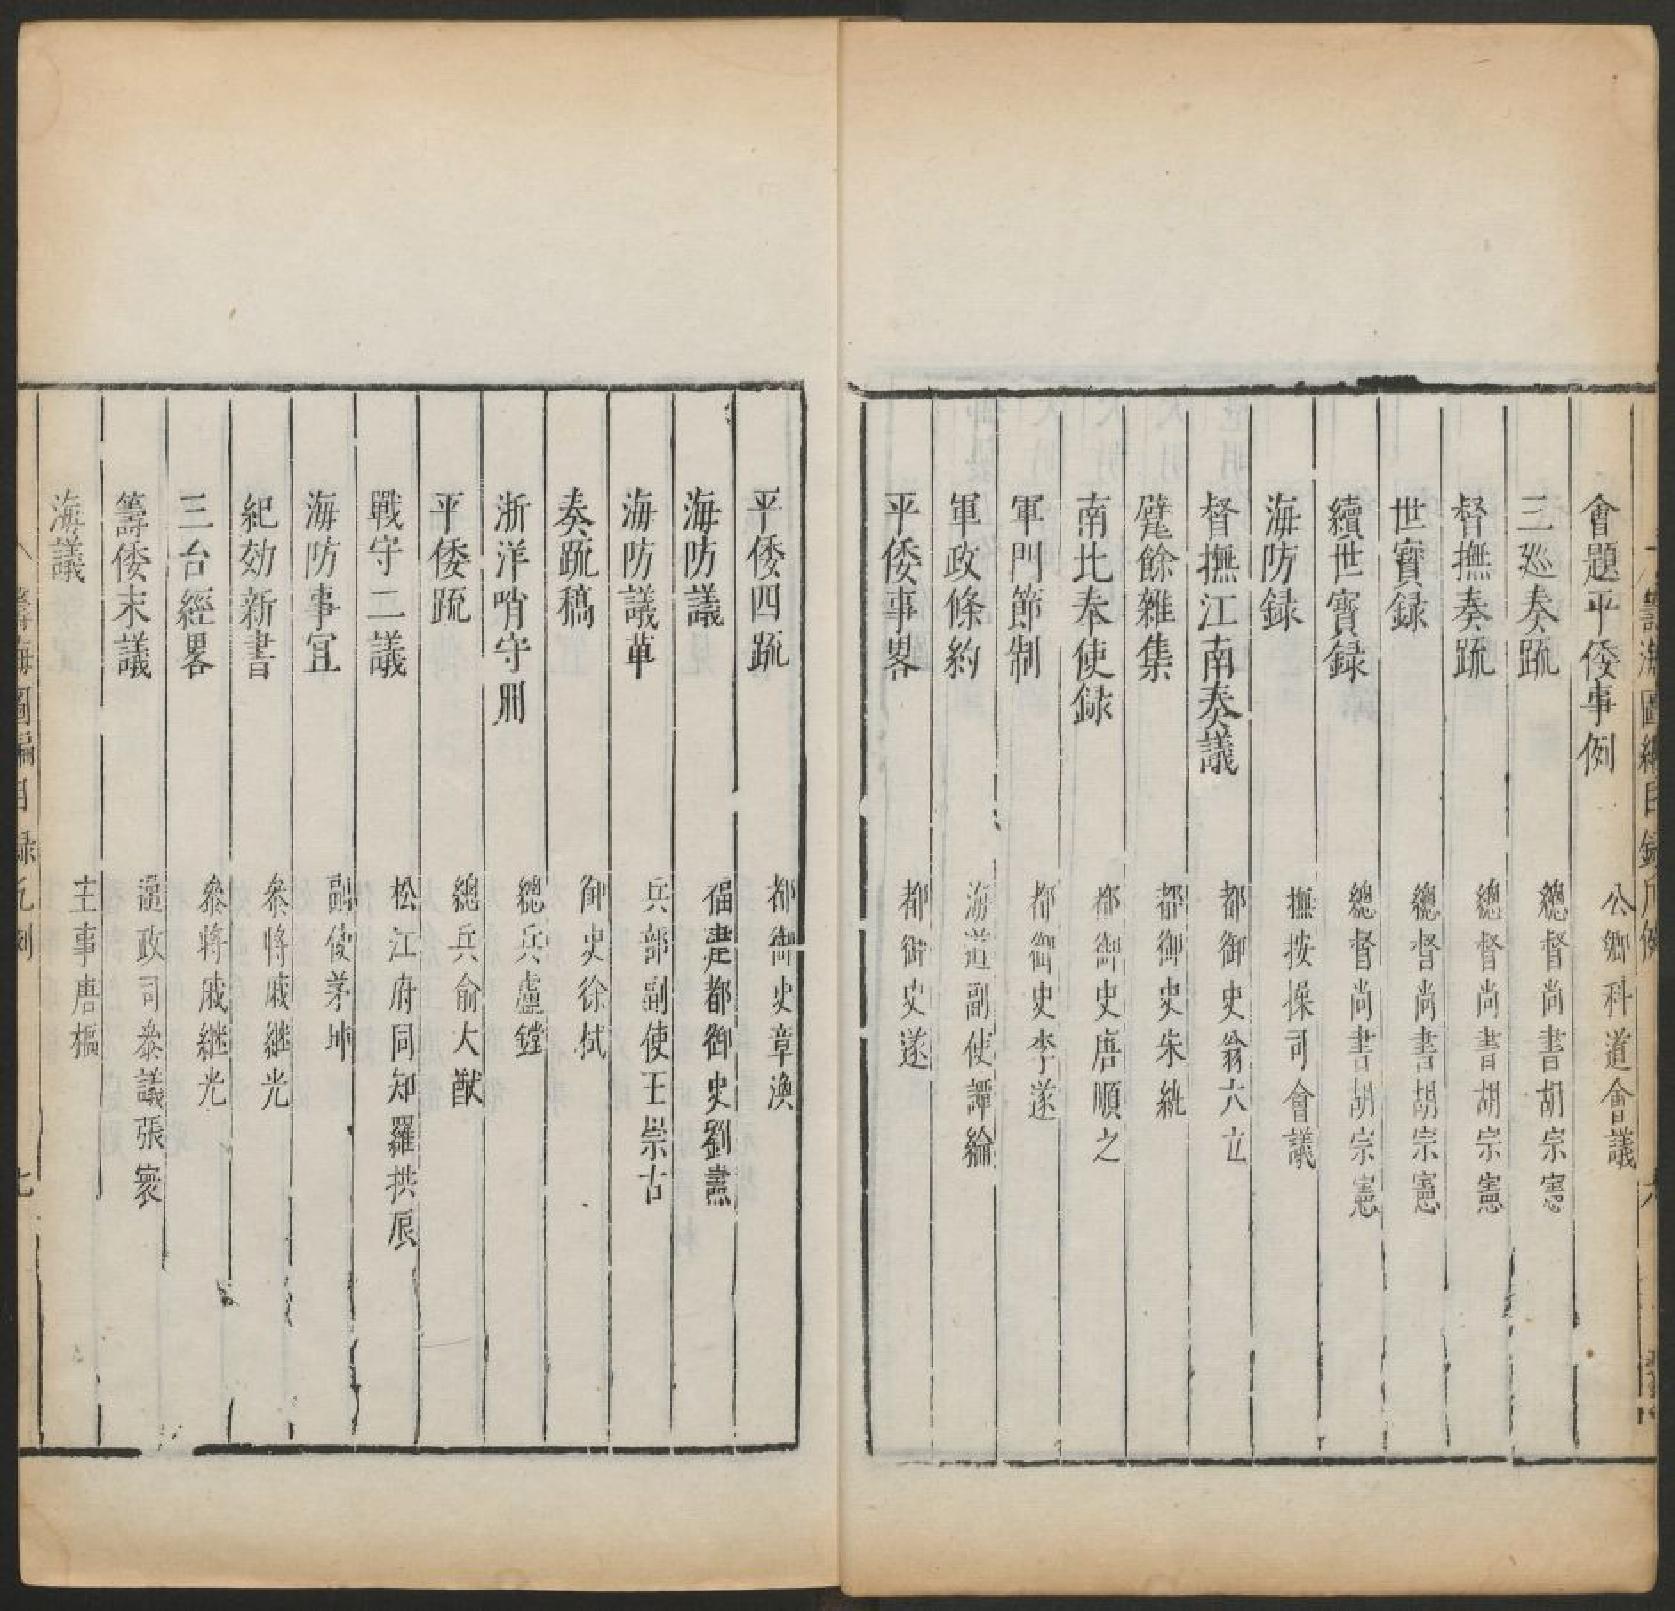 會題平倭事例 公卿科道會議
三廵奏䟽 總督尚書胡宗憲
督撫奏䟽 總督尚書胡宗憲
世寳録 總督尚書胡宗憲
續世寳録 總督尚書胡宗憲
海防録 撫按操司會議
督撫江南奏議 都御史翁大立
甓餘雜集 都御史朱紈
南北奉使録 都御史唐順之
軍門節制 都御史李遂
軍政條約 海道副使譚綸
平倭事畧 都御史遂
平倭四䟽 都御史章渙
海防議 福建都御史劉燾
海防議草 兵部副使王崇古
奏䟽稿 御史徐栻
浙洋哨守冊 總兵盧鏜
平倭䟽 總兵俞大猷
戰守二議 松江府同知羅拱辰
海防事宜 副使茅坤
紀効新書 叅將戚継光
三台經畧 叅將戚継光
籌倭末議 通政司叅議張寰
海議 主事唐樞
籌海圖編目録凡例 七